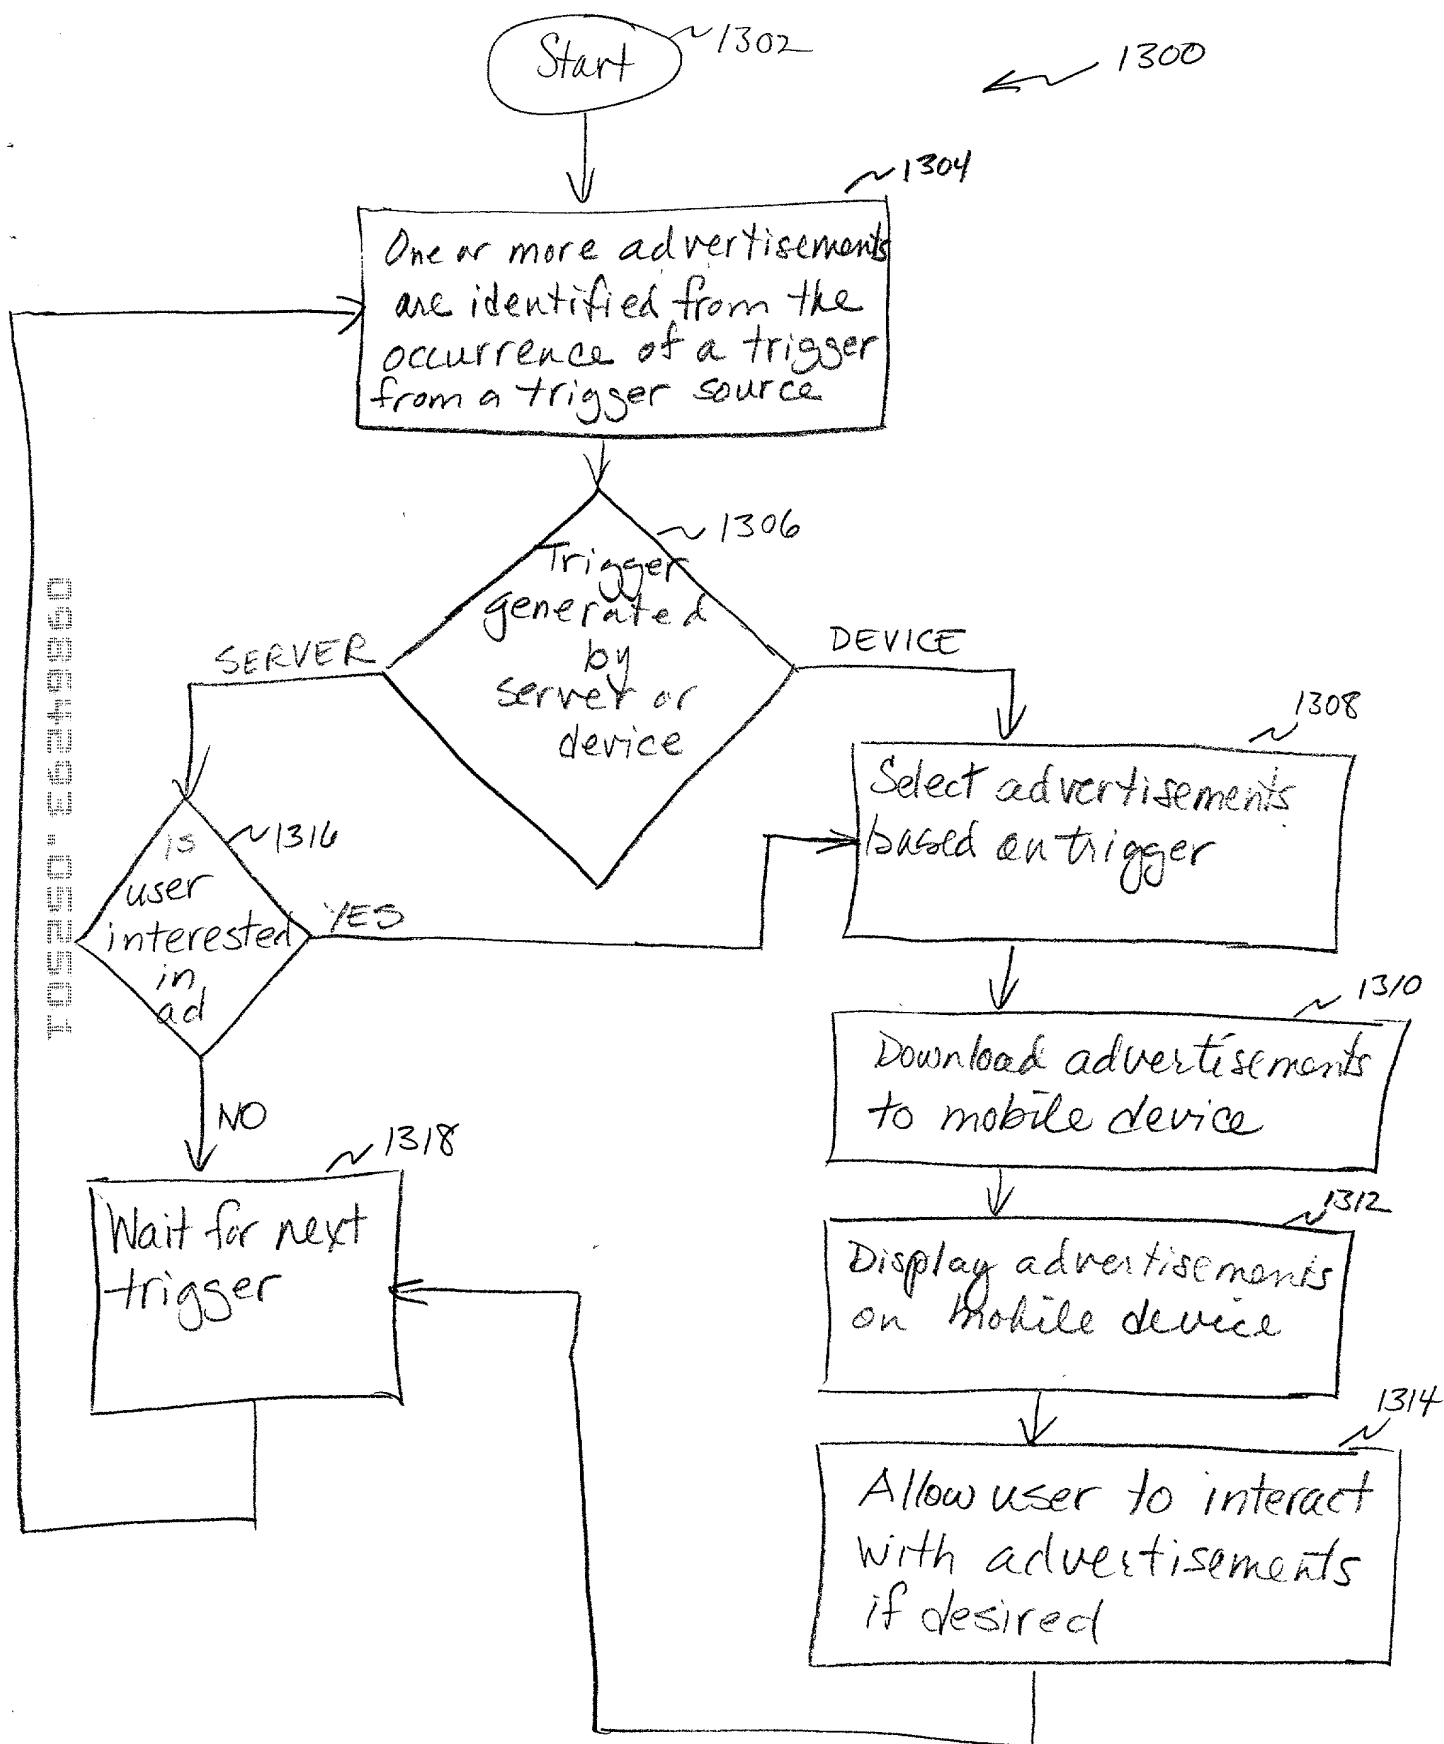 Start
1302
1300
1304
One or more advertisements
are identified from the
occurrence of a trigger
from a trigger source
1306
Trigger
generated
by
server or
device
SERVER
DEVICE
1308
Select advertisements
based on trigger
1316
is
user
interested
in
ad
YES
NO
1310
Download advertisements
to mobile device
1318
Wait for next
trigger
1312
Display advertisements
on mobile device
1314
Allow user to interact
with advertisements
if desired